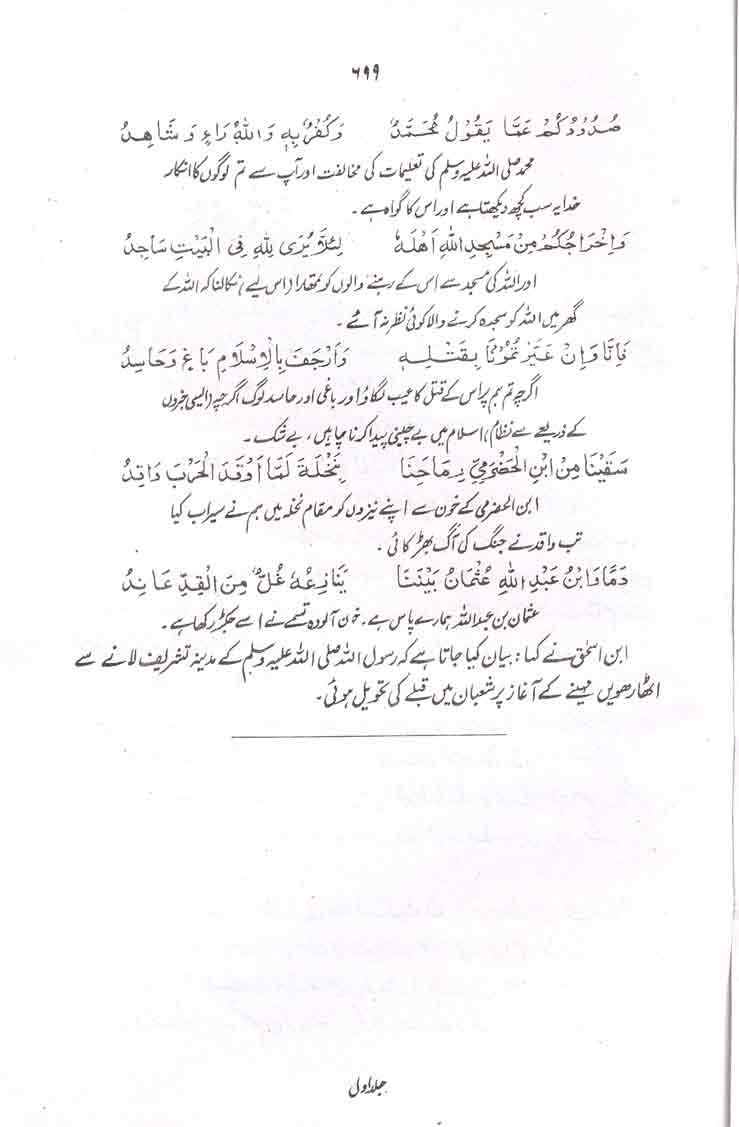 ۶۹۹
صُدُوْدُكُمْ عَمَّا يَقُوْلُ مُحَمَّدٌ وَكُفْرٌ بِهٖ وَاللّٰهُ رَاءٍ وَشَاهِدُ
محمد صلی اللہ علیہ وسلم کی تعلیمات کی مخالفت اور آپ سے تم لوگوں کا انکار
خدا یہ سب کچھ دیکھتا ہے اور اس کا گواہ ہے۔
وَاِخْرَاجُكُمْ مِنْ مَسْجِدِ اللّٰهِ اَهْلَهٗ لِئَلَّا يُرٰى لِلّٰهِ فِى الْبَيْتِ سَاجِدُ
اور اللہ کی مسجد سے اس کے رہنے والوں کو تمھارا (اس لیے) نکالنا کہ اللہ کے
گھر میں اللہ کو سجدہ کرنے والا کوئی نظر نہ آئے۔
فَاِنَّا وَاِنْ عَيَّرْتُمُوْنَا بِقَتْلِهٖ وَاَرْجَفَ بِالْاِسْلَامِ بَاغٍ وَحَاسِدُ
اگرچہ تم ہم پر اس کے قتل کا عیب لگاؤ اور باغی اور حاسد لوگ اگرچہ (ایسی خبروں
کے ذریعے سے نظام) اسلام میں بے چینی پیدا کرنا چاہیں، بے شک۔
سَقَيْنَا مِنَ ابْنِ الْحَضْرَمِيِّ رِمَاحَنَا بِنَخْلَةَ لَمَّا اَوْقَدَ الْحَرْبَ وَاقِدُ
ابن الحضرمی کے خون سے اپنے نیزوں کو مقام نخلہ میں ہم نے سیراب کیا
تب واقد نے جنگ کی آگ بھڑکائی۔
دَمًا وَابْنُ عَبْدِ اللّٰهِ عُثْمَانُ بَيْنَنَا يُنَازِعُهٗ غُلٌّ مِنَ الْقِدِّ عَانِدُ
عثمان بن عبداللہ ہمارے پاس ہے۔ خون آلودہ تسمے نے اسے جکڑ رکھا ہے۔
ابن اسحٰق نے کہا: بیان کیا جاتا ہے کہ رسول اللہ صلی اللہ علیہ وسلم کے مدینہ تشریف لانے سے
اٹھارھویں مہینے کے آغاز پر شعبان میں قبلے کی تحویل ہوئی۔
جلد اول